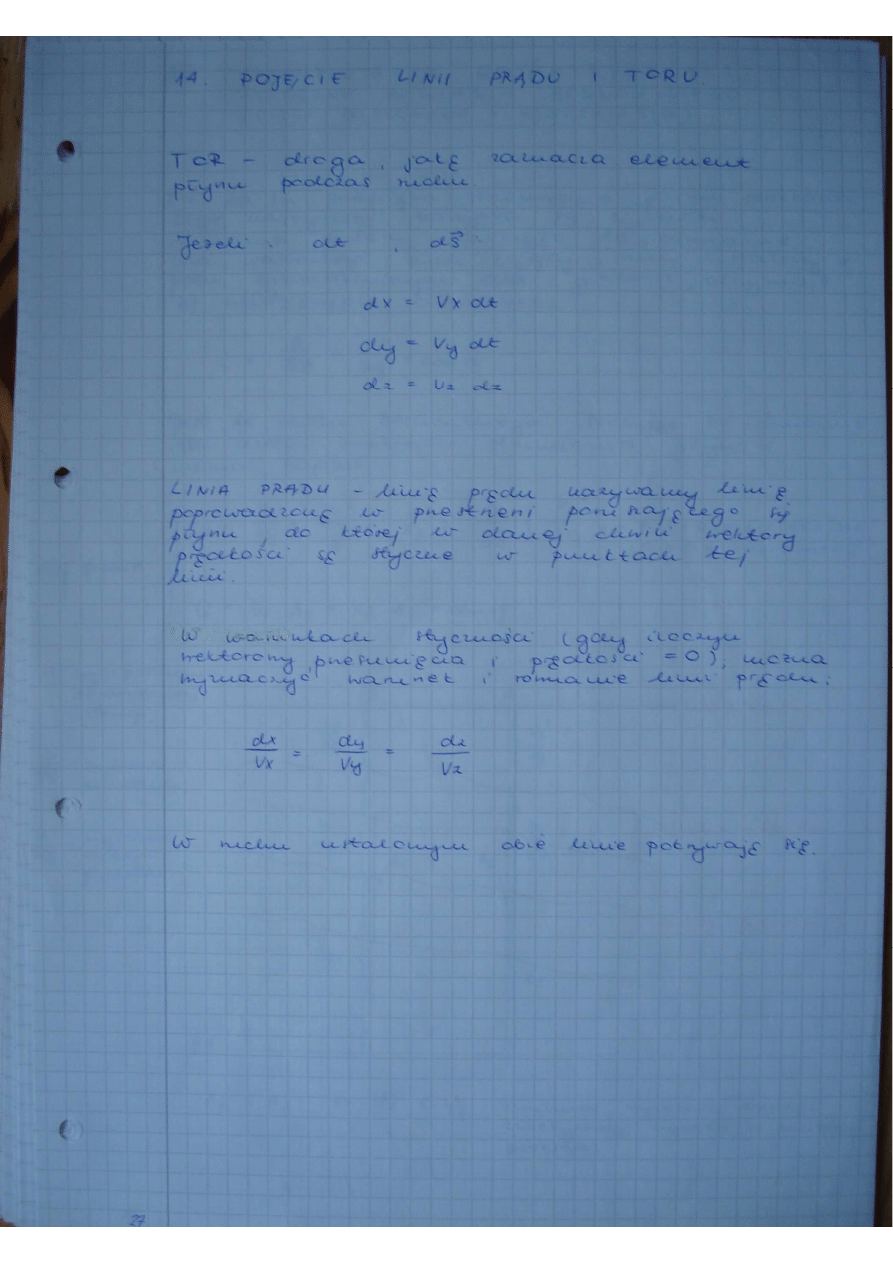 14. POJĘCIE LINII PRĄDU I TORU.
TOR - droga, jaką zaznacza element
płynu podczas ruchu.
Jeżeli: dt, ds⃗:
dx = Vx dt
dy = Vy dt
dz = Vz dz
LINIA PRĄDU - linią prądu nazywamy linię
poprowadzoną w przestrzeni poruszającego się
płynu, do której w danej chwili wektory
prędkości są styczne w punktach tej
linii.
W warunkach styczności (gdy iloczyn
wektorowy przesunięcia i prędkości = 0), można
wyznaczyć warunek i równanie linii prądu:
dx/Vx = dy/Vy = dz/Vz
W ruchu ustalonym obie linie pokrywają się.
27